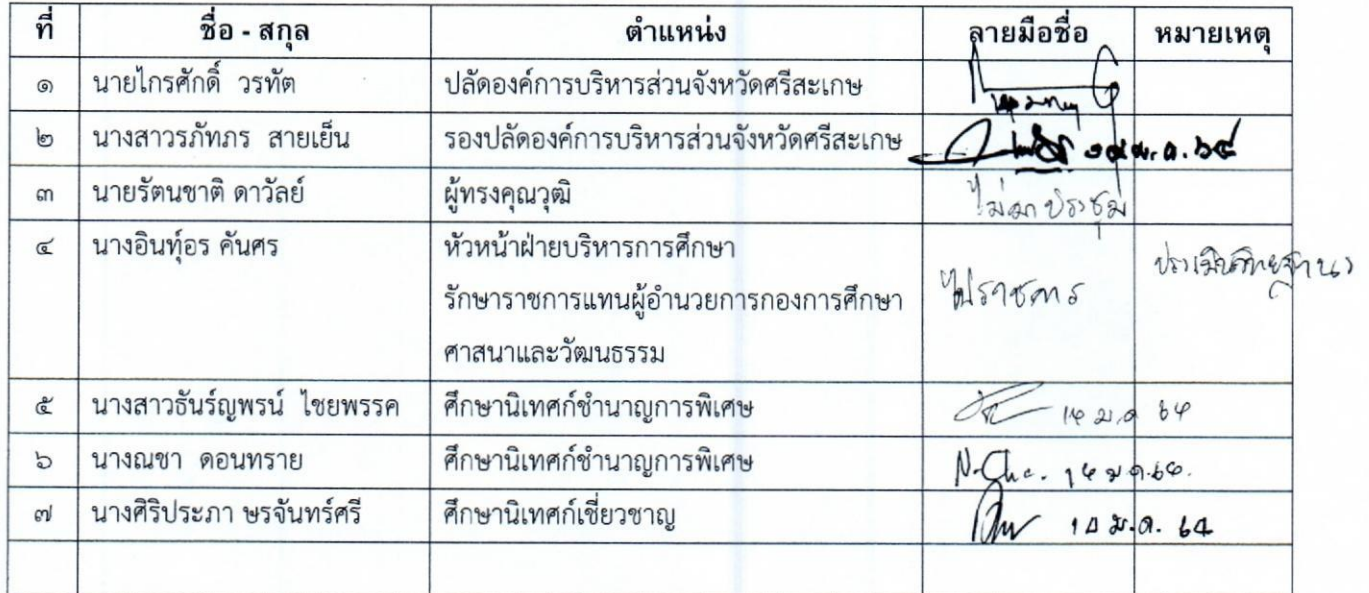 ที่ ชื่อ - สกุล ตำแหน่ง ลายมือชื่อ หมายเหตุ
๑ นายไกรศักดิ์ วรทัต ปลัดองค์การบริหารส่วนจังหวัดศรีสะเกษ
๒ นางสาวรภัทภร สายเย็น รองปลัดองค์การบริหารส่วนจังหวัดศรีสะเกษ
๓ นายรัตนชาติ ดาวัลย์ ผู้ทรงคุณวุฒิ ไม่มาประชุม
๔ นางอินทุ์อร คันศร หัวหน้าฝ่ายบริหารการศึกษา
รักษาราชการแทนผู้อำนวยการกองการศึกษา ไปราชการ ประเมินวิทยฐานะ
ศาสนาและวัฒนธรรม
๕ นางสาวธันร์ญพรน์ ไชยพรรค ศึกษานิเทศก์ชำนาญการพิเศษ ม.ค 64
๖ นางณชา ดอนทราย ศึกษานิเทศก์ชำนาญการพิเศษ N.Cha. ม.ค.64.
๗ นางศิริประภา ษรจันทร์ศรี ศึกษานิเทศก์เชี่ยวชาญ ม.ค. 64